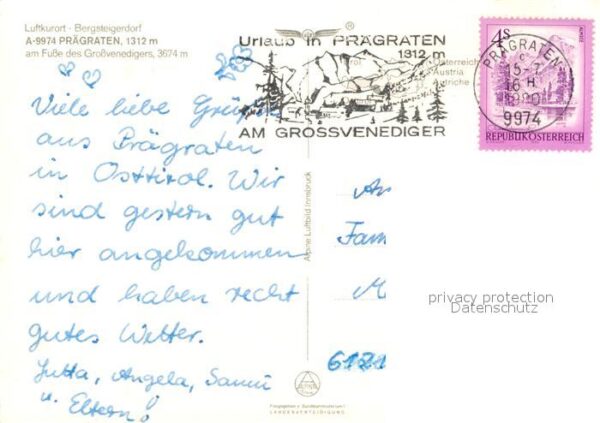 Luftkurort - Bergsteigerdorf
A-9974 PRÄGRATEN, 1312 m
am Fuße des Großvenedigers, 3674 m
Urlaub in PRÄGRATEN
1312 m
AM GROSSVENEDIGER
Österreich
Austria
Autriche
PRÄGRATEN
9974
4 S
REPUBLIK ÖSTERREICH
Viele liebe Grüße
aus Prägraten
in Osttirol. Wir
sind gestern gut
hier angekommen
und haben recht
gutes Wetter.
Jutta, Angela, Sanni
u. Eltern!
Alpine Luftbild Innsbruck
An
Fam
M
6121
privacy protection
Datenschutz
LANDESVERTEIDIGUNG